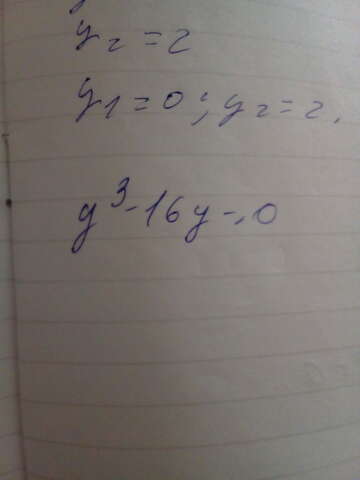 y₂ = 2
y₁ = 0; y₂ = 2.
y³ - 16y = 0